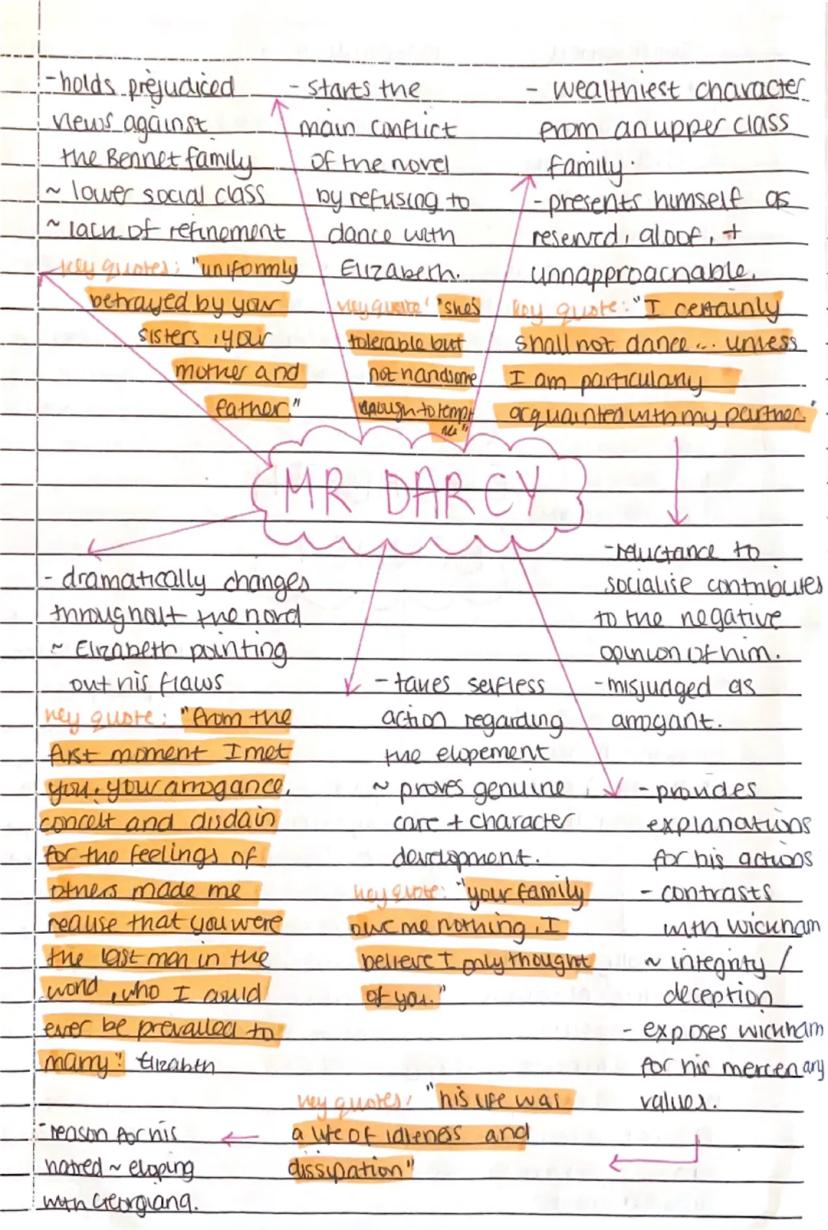 - holds prejudiced
views against
the Bennet family
~ lower social class
~ lack of refinement
key quotes: "uniformly
betrayed by your
sisters, your
mother and
father."
- starts the
main conflict
of the novel
by refusing to
dance with
Elizabeth.
key quote: "she's
tolerable but
not handsome
enough to tempt
me"
- wealthiest character
from an upper class
family
- presents himself as
reserved, aloof, +
unnapproachable.
key quote: "I certainly
shall not dance ... unless
I am particulary
acquainted with my partner."
MR DARCY
- reluctance to
socialise contributes
to the negative
opinion of him.
- misjudged as
arrogant.
- dramatically changes
throughout the novel
~ Elizabeth pointing
out his flaws
key quote: "from the
first moment I met
you, your arrogance,
conceit and disdain
for the feelings of
others made me
realise that you were
the last man in the
world, who I could
ever be prevailed to
marry." Elizabeth
- takes selfless
action regarding
the elopement
~ proves genuine
care + character
development.
key quote: "your family
owe me nothing, I
believe I only thought
of you."
- provides
explanations
for his actions
- contrasts
with wickham
~ integrity /
deception
- exposes wickham
for his mercenary
values.
key quotes: "his life was
a life of idleness and
dissipation"
- reason for his
hatred ~ eloping
with Georgiana.